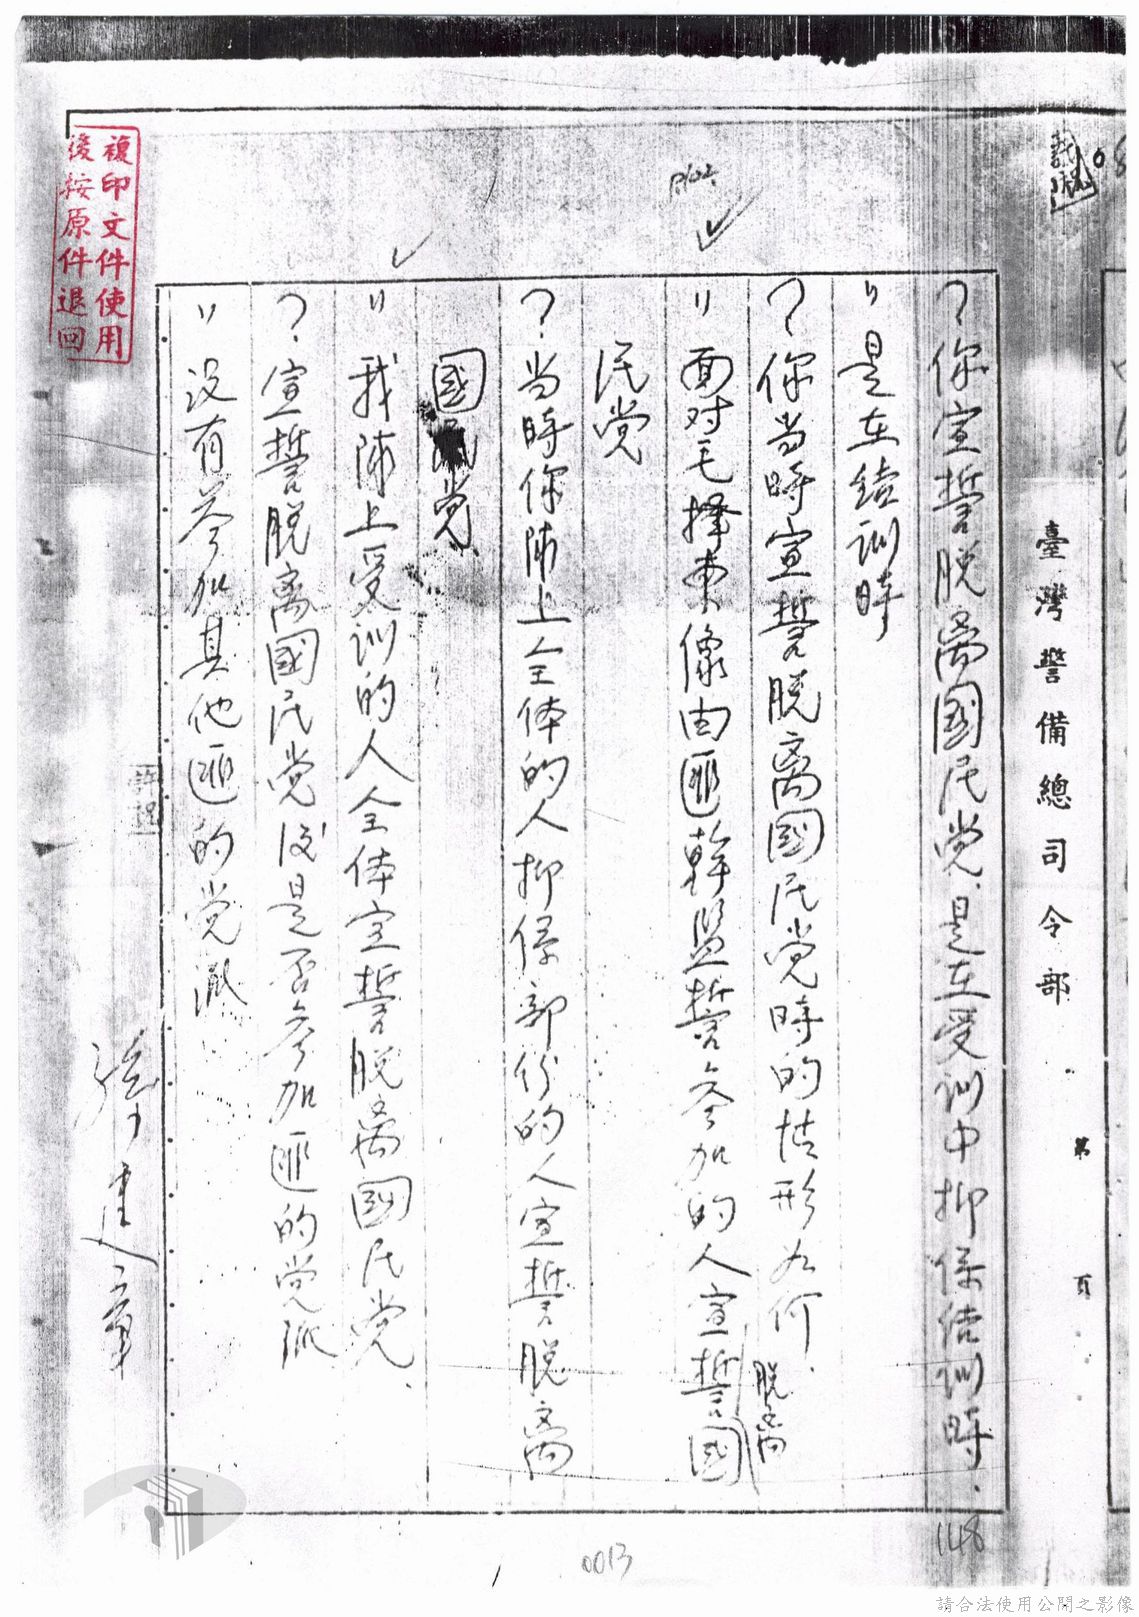 臺灣警備總司令部
第 頁
？你宣誓脫离國民党．是在受训中抑係结训時．
〃是在结训時
？你当時宣誓脫离國民党時的情形为何．
〃面对毛擇東像由匪幹监誓参加的人宣誓脫离國
民党
？当時你师上全体的人抑係部份的人宣誓脫离
國民党
〃我师上受训的人全体宣誓脫离國民党．
？宣誓脫离國民党後是否参加匪的党派
〃没有参加其他匪的党派
建章
複印文件使用
後按原件退回
148
0013
請合法使用公開之影像